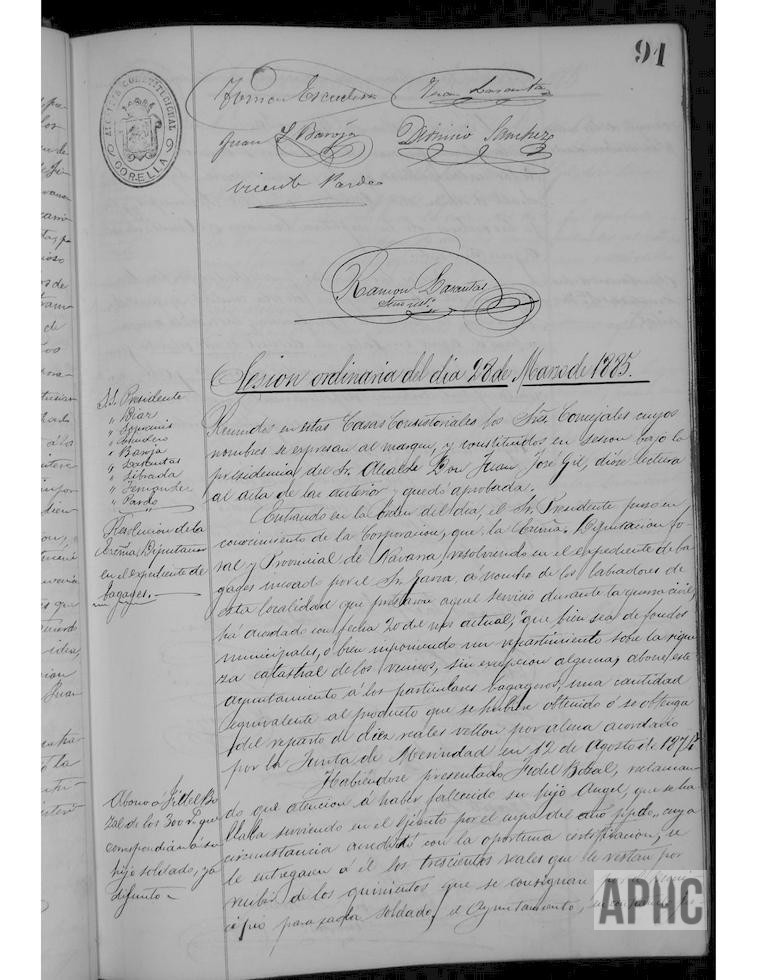 91
AYUNTO CONSTITUCIONAL
CORELLA
Fermin Escudero Juan Lasanta
Juan L Baroja Dionisio Sanchez
Vicente Pardo
Ramon Lasantas
Sesion ordinaria del dia 28 de Marzo de 1885.
SS. Presidente
" Diaz
" Escudero
" Baroja
" Lasantas
" Librada
" Fernandez
" Pardo
Reunidos en estas Casas Consistoriales los Sres Concejales cuyos
nombres se expresan al margen, y constituidos en sesion bajo la
presidencia del Sr. Alcalde Don Juan José Gil, dióse lectura
al acta de la anterior y quedó aprobada.
Resolucion de la
Excma. Diputacion
en el expediente de
bagages.
Entrando en la orden del dia, el Sr. Presidente puso en
conocimiento de la Corporacion, que la Excma. Diputacion fo-
ral y Provincial de Navarra, resolviendo en el expediente de ba-
gages incoado por el Sr. Garra, á nombre de los labradores de
esta localidad que prestaron aquel servicio durante la guerra civil,
há acordado con fecha 20 del mes actual, "que bien sea de fondos
municipales, ó bien imponiendo un repartimiento sobre la rique-
za catastral de los vecinos, sin excepcion alguna, abone este
ayuntamiento á los particulares bagageros, una cantidad
equivalente al producto que se hubiere obtenido ó se obtenga
del reparto de diez reales vellon por alma acordado
por la Junta de Merindad en 12 de Agosto de 1874"
Abono á Fidel Bo-
zal de los 300 rs. que
correspondian á su
hijo soldado, ya
difunto
Habiéndose presentado Fidel Bozal, reclaman-
do que atencion á haber fallecido su hijo Angel, que se ha-
llaba sirviendo en el Ejército por el cupo del año ppdo., cuya
circunstancia acreditó con la oportuna certificacion, se
le entregasen á él los trescientos reales que le restan por
recibir de los quinientos que se consignan por el Muni-
cipio para cada soldado, el Ayuntamiento,
APHC